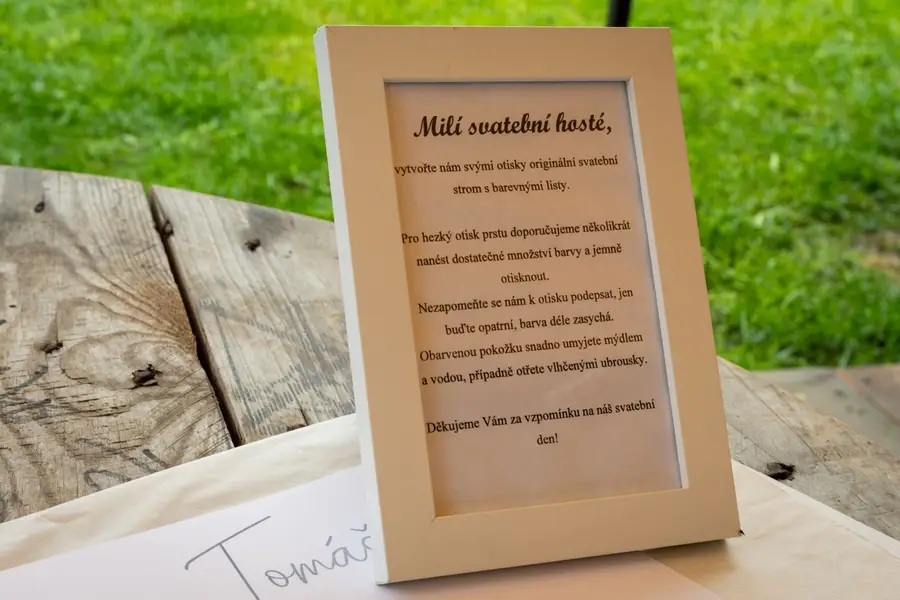 Milí svatební hosté,
vytvořte nám svými otisky originální svatební
strom s barevnými listy.
Pro hezký otisk prstu doporučujeme několikrát
nanést dostatečné množství barvy a jemně
otisknout.
Nezapomeňte se nám k otisku podepsat, jen
buďte opatrní, barva déle zasychá.
Obarvenou pokožku snadno umyjete mýdlem
a vodou, případně otřete vlhčenými ubrousky.
Děkujeme Vám za vzpomínku na náš svatební
den!
Tomáš